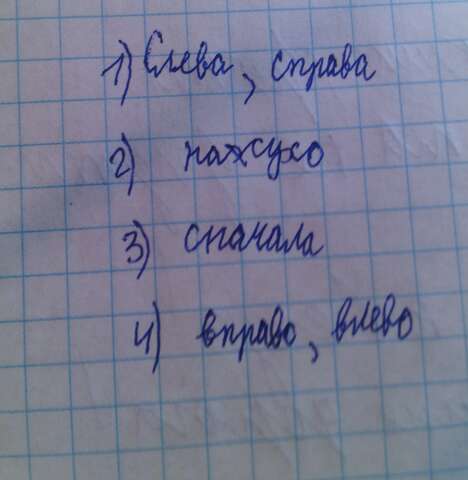 1) Слева, справа
2) насухо
3) сначала
4) вправо, влево